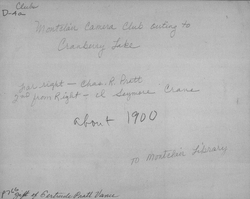 Club
D-42
Montclair Camera Club outing to
Cranberry Lake
far right - Chas. R. Pratt
2nd from Right - Seymour Crane
about 1900
Montclair Library
Gift of Gertrude Pratt Vance